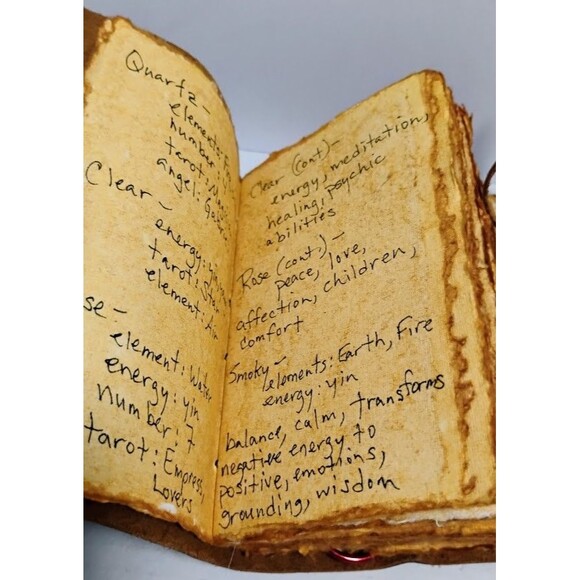 Quartz -
elements:
number:
tarot:
angel:
Clear -
energy:
tarot: Star
element: Air
se -
element: Water
energy: yin
number: 7
tarot: Empress,
Lovers
Clear (cont) -
energy, meditation,
healing, psychic
abilities
Rose (cont.) -
peace, love,
affection, children,
comfort
Smoky -
elements: Earth, Fire
energy: yin
balance, calm, transforms
negative energy to
positive, emotions,
grounding, wisdom